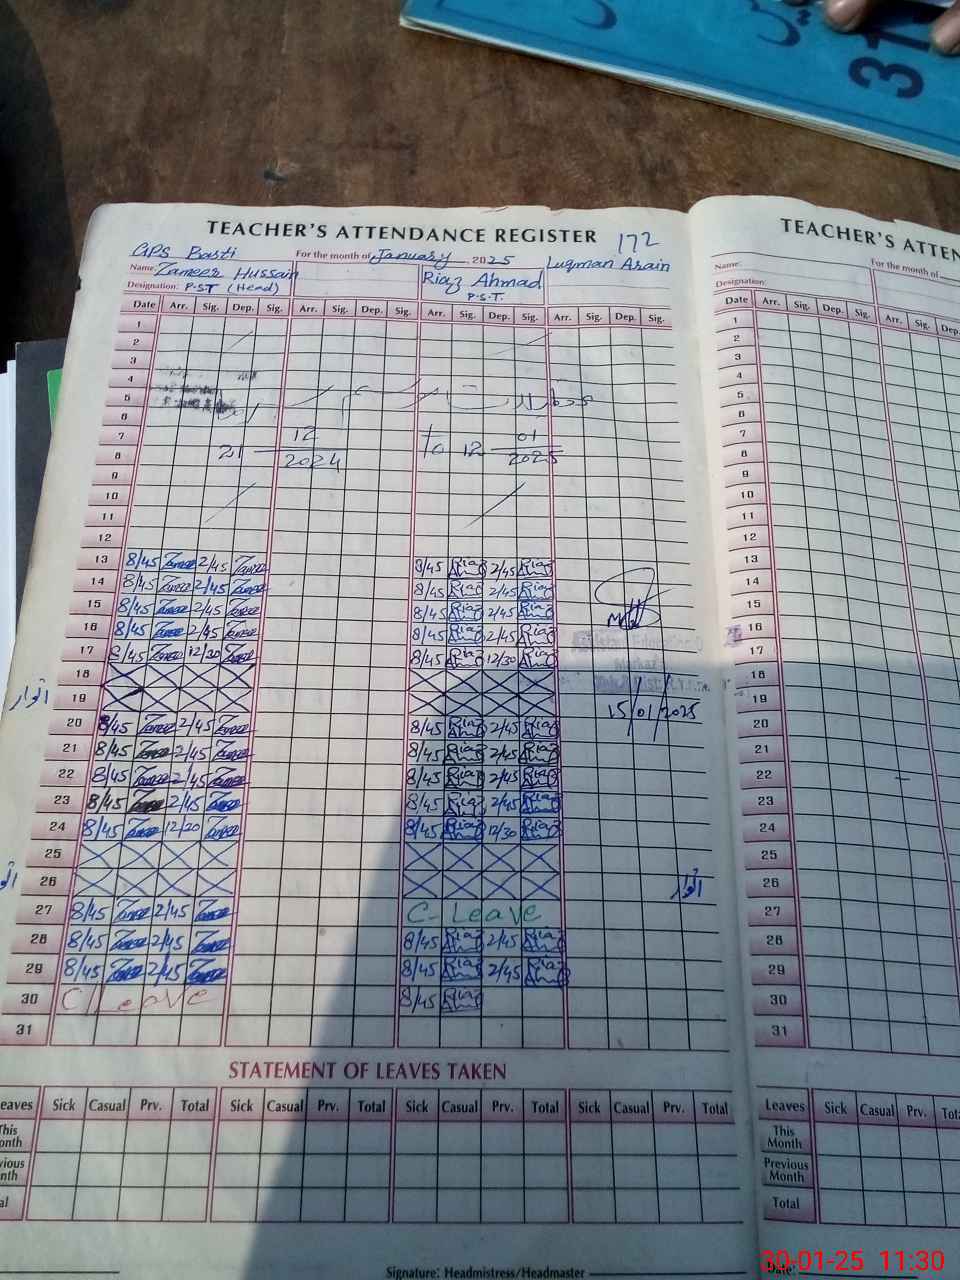 31
TEACHER'S ATTENDANCE REGISTER 172
GPS Basti For the month of January 2025 Luqman Arain
Name: Zameer Hussain Riaz Ahmad
Designation: P.S.T (Head) P.S.T.
Date Arr. Sig. Dep. Sig. Arr. Sig. Dep. Sig. Arr. Sig. Dep. Sig. Arr. Sig. Dep. Sig.
1
2
3
4
5
6
7 12 01
8 21 2024 To 12 2025
9
10
11
12
13 8/45 Zameer 2/45 Zameer 8/45 Riaz Ahmad 2/45 Riaz Ahmad
14 8/45 Zameer 2/45 Zameer 8/45 Riaz Ahmad 2/45 Riaz Ahmad
15 8/45 Zameer 2/45 Zameer 8/45 Riaz Ahmad 2/45 Riaz Ahmad
16 8/45 Zameer 2/45 Zameer 8/45 Riaz Ahmad 2/45 Riaz Ahmad
17 8/45 Zameer 12/30 Zameer 8/45 Riaz Ahmad 12/30 Riaz Ahmad
18
19 اتوار 15/01/2025
20 8/45 Zameer 2/45 Zameer 8/45 Riaz Ahmad 2/45 Riaz Ahmad
21 8/45 Zameer 2/45 Zameer 8/45 Riaz Ahmad 2/45 Riaz Ahmad
22 8/45 Zameer 2/45 Zameer 8/45 Riaz Ahmad 2/45 Riaz Ahmad
23 8/45 Zameer 2/45 Zameer 8/45 Riaz Ahmad 2/45 Riaz Ahmad
24 8/45 Zameer 12/30 Zameer 8/45 Riaz Ahmad 12/30 Riaz Ahmad
25
26 اتوار
27 8/45 Zameer 2/45 Zameer C-Leave
28 8/45 Zameer 2/45 Zameer 8/45 Riaz Ahmad 2/45 Riaz Ahmad
29 8/45 Zameer 2/45 Zameer 8/45 Riaz Ahmad 2/45 Riaz Ahmad
30 C/Leave 8/45 Riaz Ahmad
31
STATEMENT OF LEAVES TAKEN
Leaves Sick Casual Prv. Total Sick Casual Prv. Total Sick Casual Prv. Total Sick Casual Prv. Total
This Month
Previous Month
Total
Signature: Headmistress/Headmaster
TEACHER'S ATTEN
For the month of
Name:
Designation:
Date Arr. Sig. Dep. Sig. Arr. Sig. Dep.
1
2
3
4
5
6
7
8
9
10
11
12
13
14
15
16
17
18
19
20
21
22
23
24
25
26
27
28
29
30
31
Leaves Sick Casual Prv. Tota
This Month
Previous Month
Total
Date:
30-01-25 11:30